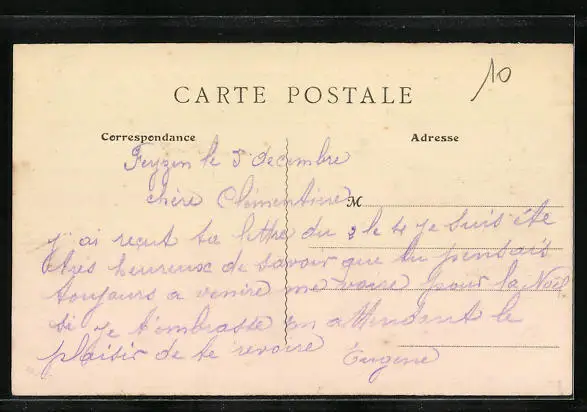 10
CARTE POSTALE
Correspondance
Adresse
Feyzin le 5 decembre
chère Clémentine
M
j'ai reçut ta lettre du 2 le 4 je suis été
très heureux de savoir que tu pensais
toujours a venire me voire pour la Noël
si je t'embrasse en attendant le
plaisir de te revoire Eugene